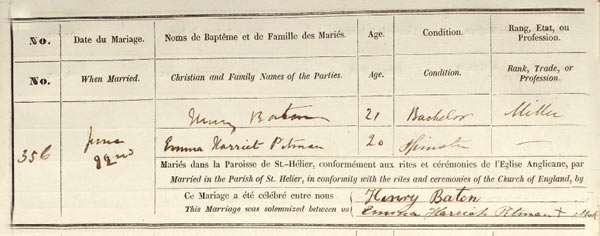 No. Date du Mariage. Noms de Baptême et de Famille des Mariés. Age. Condition. Rang, Etat, ou Profession.
No. When Married. Christian and Family Names of the Parties. Age. Condition. Rank, Trade, or Profession.
Henry Baton 21 Bachelor Miller
356 June 22nd Emma Harriet Pitman 20 Spinster —
Mariés dans la Paroisse de St.-Hélier, conformément aux rites et cérémonies de l'Eglise Anglicane, par
Married in the Parish of St. Helier, in conformity with the rites and ceremonies of the Church of England, by
Ce Mariage a été célébré entre nous Henry Baton
This Marriage was solemnized between us Emma Harriet Pitman X Mark